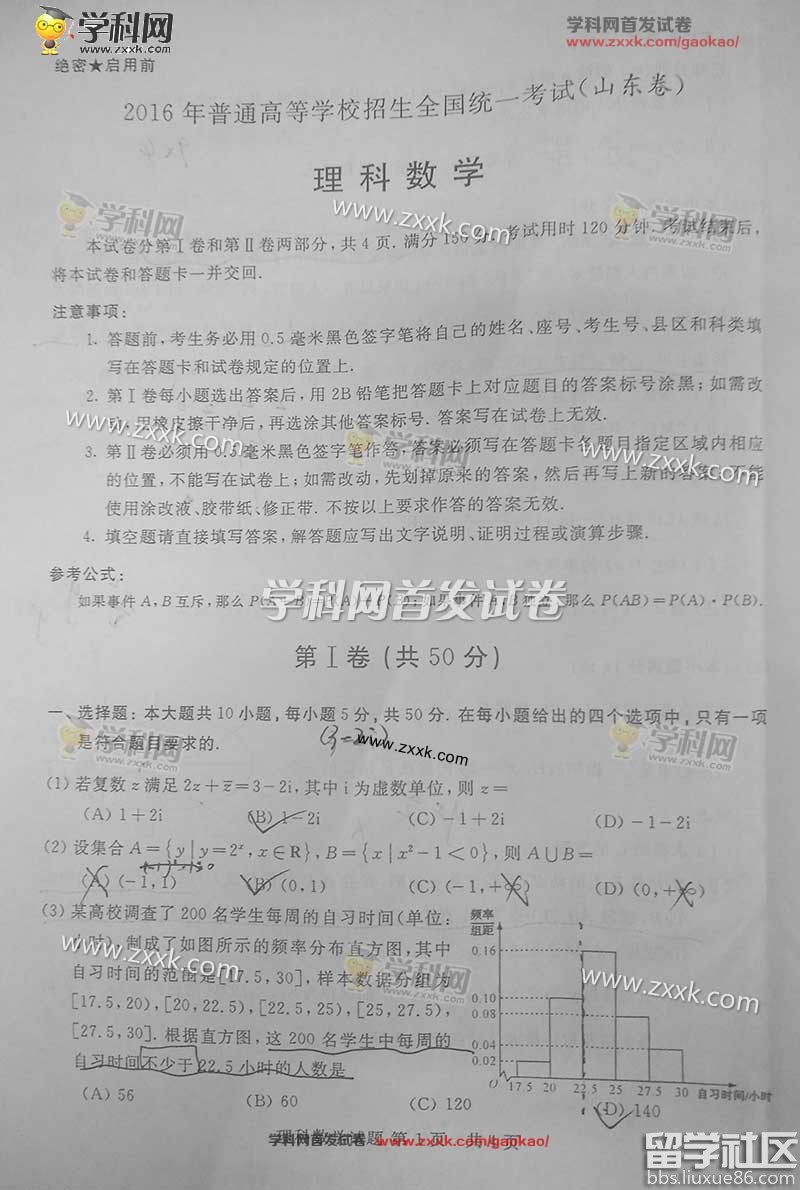 学科网
www.zxxk.com
学科网首发试卷
www.zxxk.com/gaokao/
绝密★启用前
2016年普通高等学校招生全国统一考试(山东卷)
9×4
理科数学
学科网
www.zxxk.com
学科网
www.zxxk.com
本试卷分第Ⅰ卷和第Ⅱ卷两部分,共4页.满分150分.考试用时120分钟.考试结束后,
将本试卷和答题卡一并交回.
注意事项:
1. 答题前,考生务必用0.5毫米黑色签字笔将自己的姓名、座号、考生号、县区和科类填
写在答题卡和试卷规定的位置上.
2. 第Ⅰ卷每小题选出答案后,用2B铅笔把答题卡上对应题目的答案标号涂黑;如需改
用橡皮擦干净后,再选涂其他答案标号.答案写在试卷上无效.
www.zxxk.com
学科网
3. 第Ⅱ卷必须用0.5毫米黑色签字笔作答,答案必须写在答题卡各题目指定区域内相应
的位置,不能写在试卷上;如需改动,先划掉原来的答案,然后再写上新的答案;不能
www.zxxk.com
使用涂改液、胶带纸、修正带.不按以上要求作答的答案无效.
4. 填空题请直接填写答案,解答题应写出文字说明、证明过程或演算步骤.
参考公式:
学科网首发试卷
如果事件A,B互斥,那么P(A+B)=P(A)+P(B);如果事件A,B独立,那么P(AB)=P(A)·P(B).
第Ⅰ卷(共50分)
一、选择题:本大题共10小题,每小题5分,共50分.在每小题给出的四个选项中,只有一项
是符合题目要求的.
(3-2i)
www.zxxk.com
学科网
学科网
(1)若复数z满足2z+z̅=3-2i,其中i为虚数单位,则z=
(A) 1+2i (B) 1-2i (C) -1+2i (D) -1-2i
(2)设集合A={y|y=2ˣ,x∈R},B={x|x²-1<0},则A∪B=
(A) (-1,1) (B) (0,1) (C) (-1,+∞) (D) (0,+∞)
(3)某高校调查了200名学生每周的自习时间(单位:
小时),制成了如图所示的频率分布直方图,其中
www.zxxk.com
学科网
自习时间的范围是[17.5,30],样本数据分组为
[17.5,20),[20,22.5),[22.5,25),[25,27.5),
[27.5,30].根据直方图,这200名学生中每周的
自习时间不少于22.5小时的人数是
频率
组距
0.16
0.10
0.08
0.04
0.02
O 17.5 20 22.5 25 27.5 30 自习时间/小时
www.zxxk.com
(A) 56 (B) 60 (C) 120 (D) 140
理科数学试题 第1页 共4页
学科网首发试卷 www.zxxk.com/gaokao/
留学社区
bbs.liuxue86.com